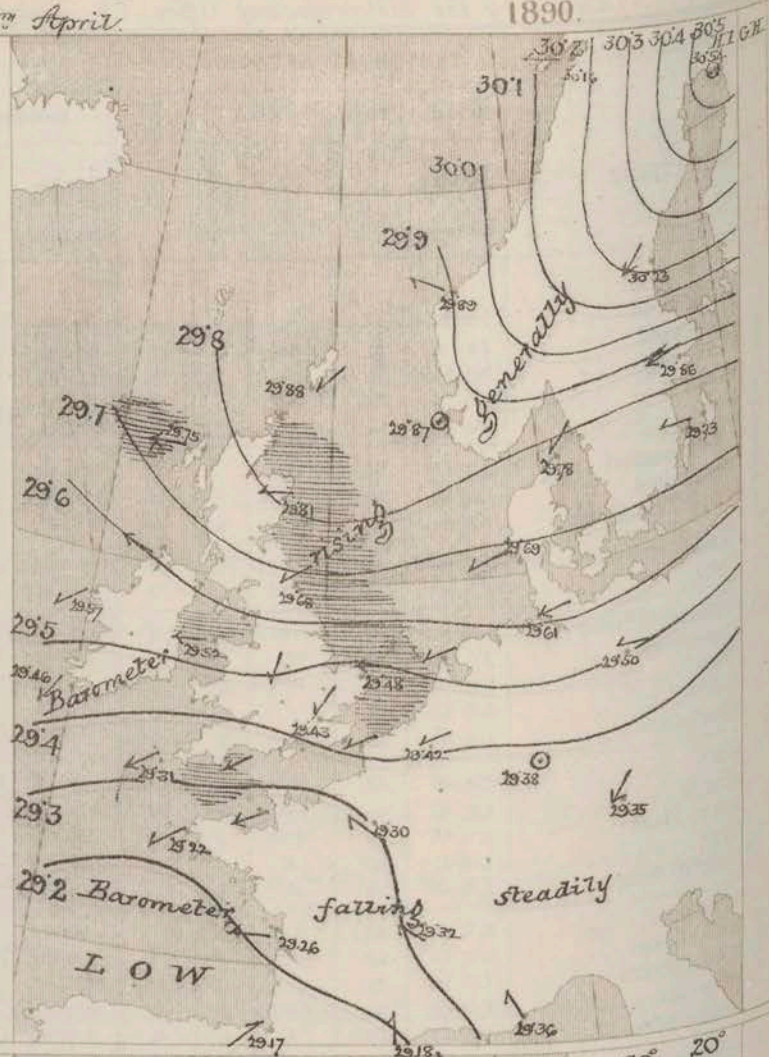 April.
1890.
30·2 30·3 30·4 30·5 HIGH
30·1
30·16
30·0
29·9
30·23
29·89
29·8
29·86
29·88
29·7
29·75
29·87
29·73
generally
29·78
29·6
29·81
rising
29·69
29·68
29·57
29·61
29·5
29·52
29·50
29·46
Barometer
29·48
29·4
29·43
29·42
29·38
29·31
29·35
29·3
29·30
29·22
29·2
Barometer falling steadily
29·32
29·26
LOW
29·36
29·17
29·18
20°